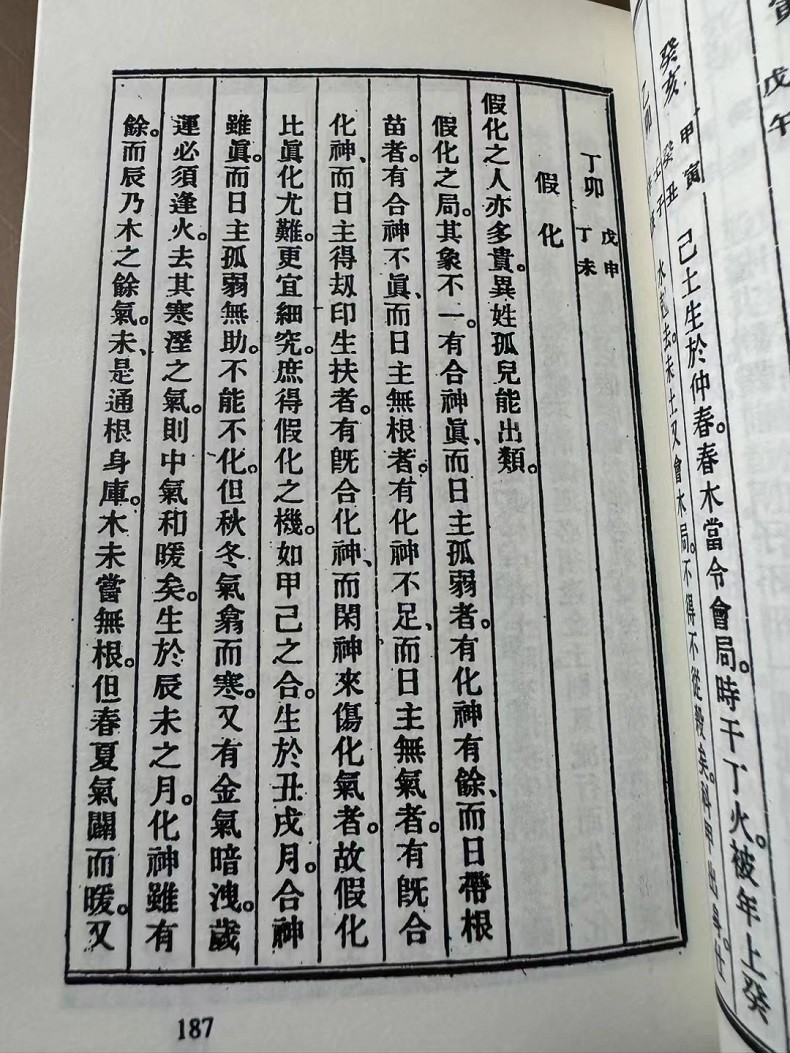 戊午
癸亥
甲寅
癸丑
己土生於仲春。春木當令會局。時干丁火。被年上癸
水尅去。未土又會木局。不得不從殺矣。科甲出身。仕
丁卯
戊申
丁未
假化
假化之人亦多貴。異姓孤兒能出類。
假化之局。其象不一。有合神眞、而日主孤弱者。有化神有餘、而日帶根
苗者。有合神不眞、而日主無根者。有化神不足、而日主無氣者。有旣合
化神、而日主得刼印生扶者。有旣合化神、而閑神來傷化氣者。故假化
比眞化尤難。更宜細究。庶得假化之機。如甲己之合。生於丑戌月。合神
雖眞。而日主孤弱無助。不能不化。但秋冬氣翕而寒。又有金氣暗洩。歲
運必須逢火。去其寒溼之氣。則中氣和暖矣。生於辰未之月。化神雖有
餘。而辰乃木之餘氣。未、是通根身庫。木未嘗無根。但春夏氣闢而暖。又
187